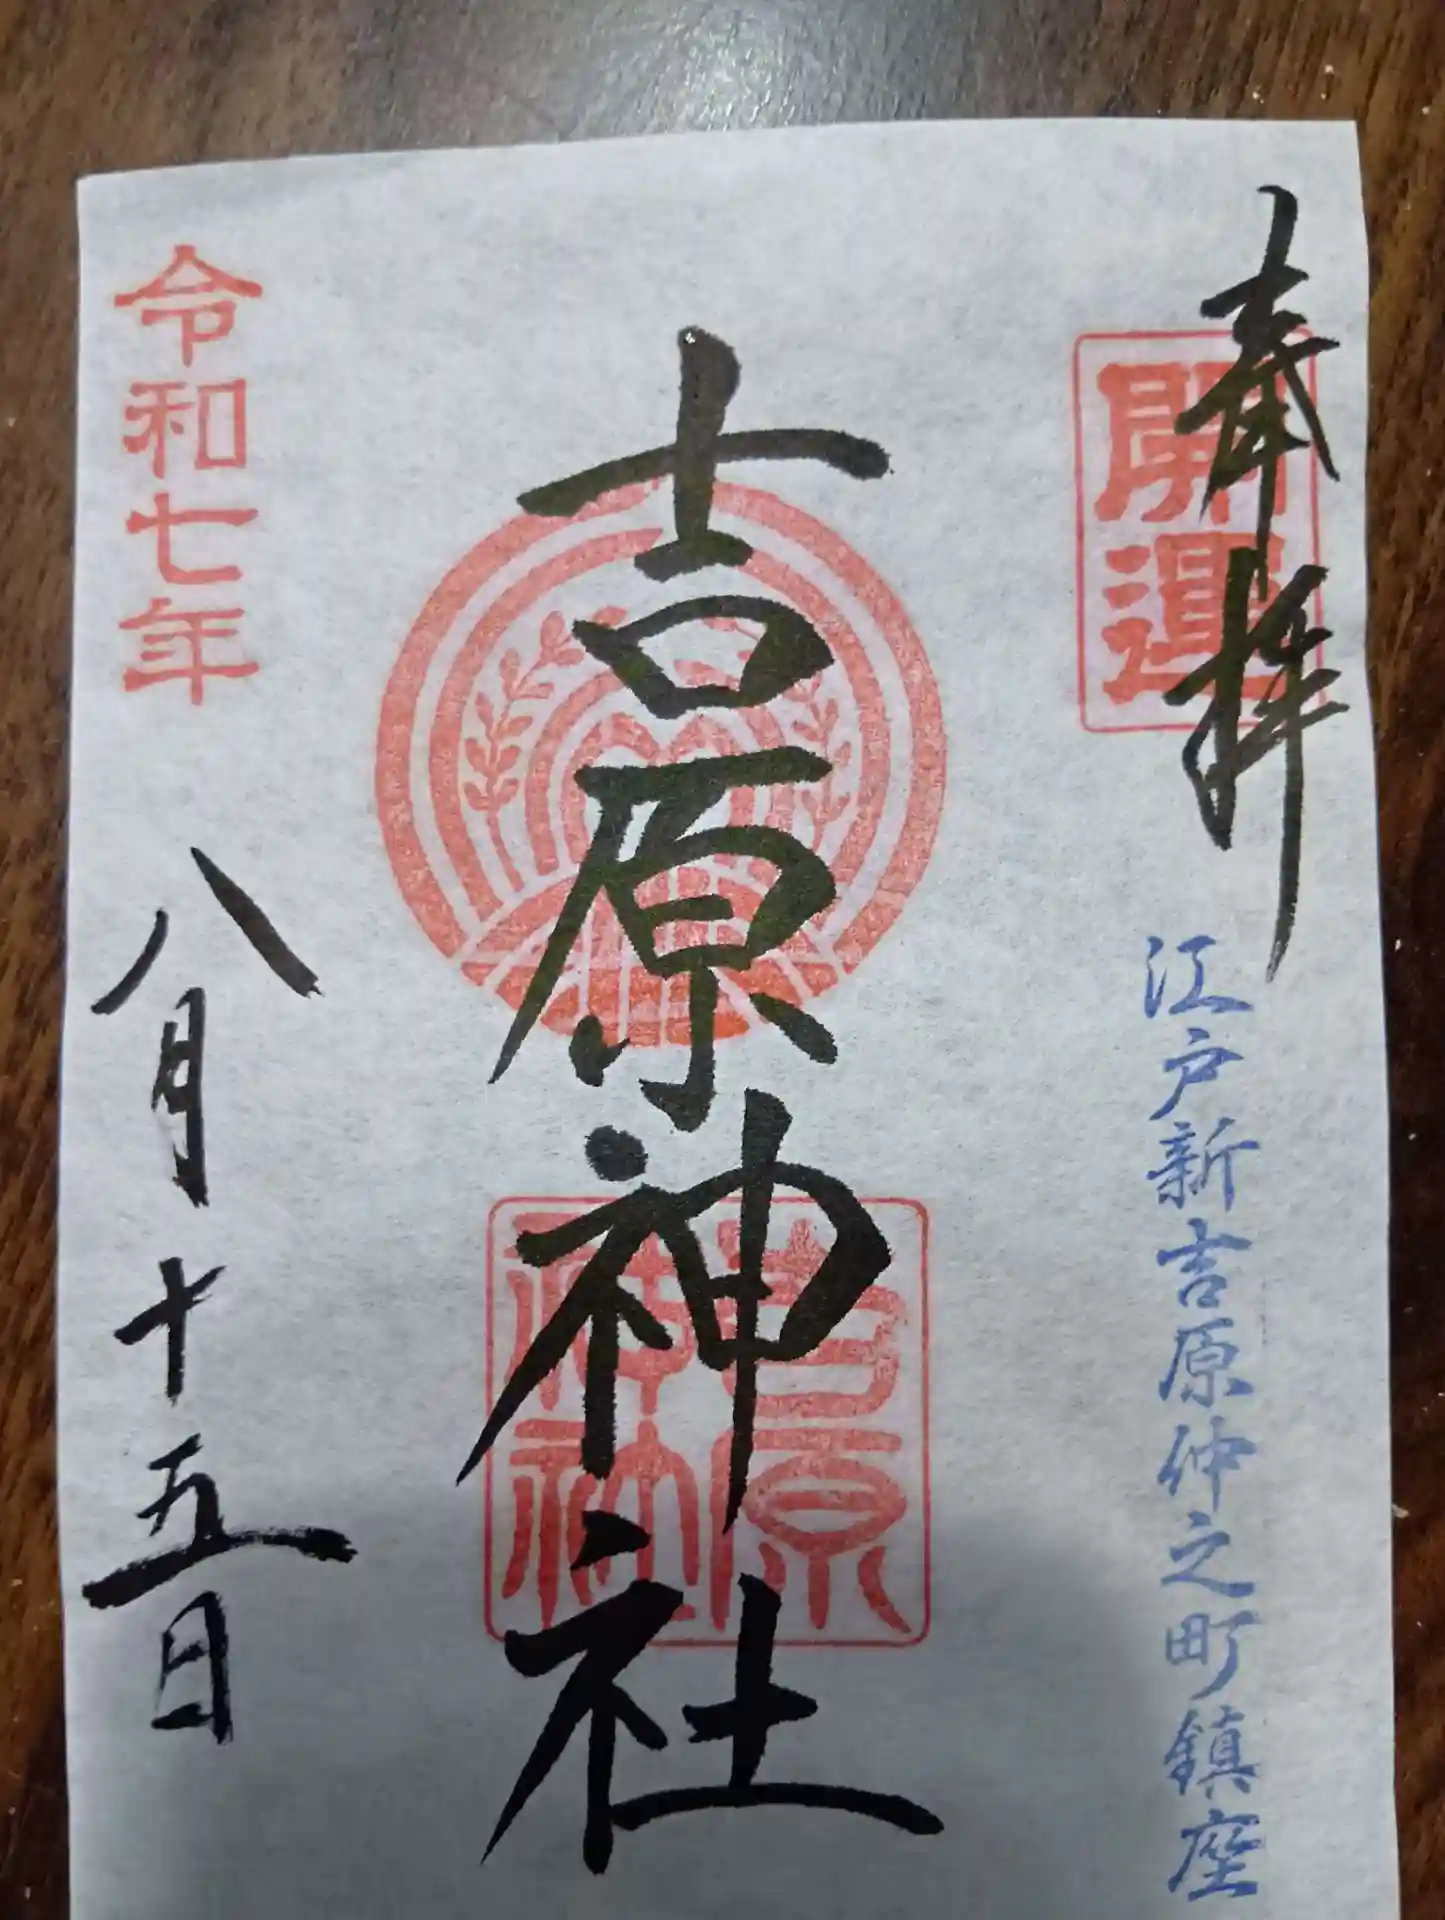 奉拝
開運
江戸新吉原仲之町鎮座
吉原神社
吉原
神社
令和七年
八月十五日